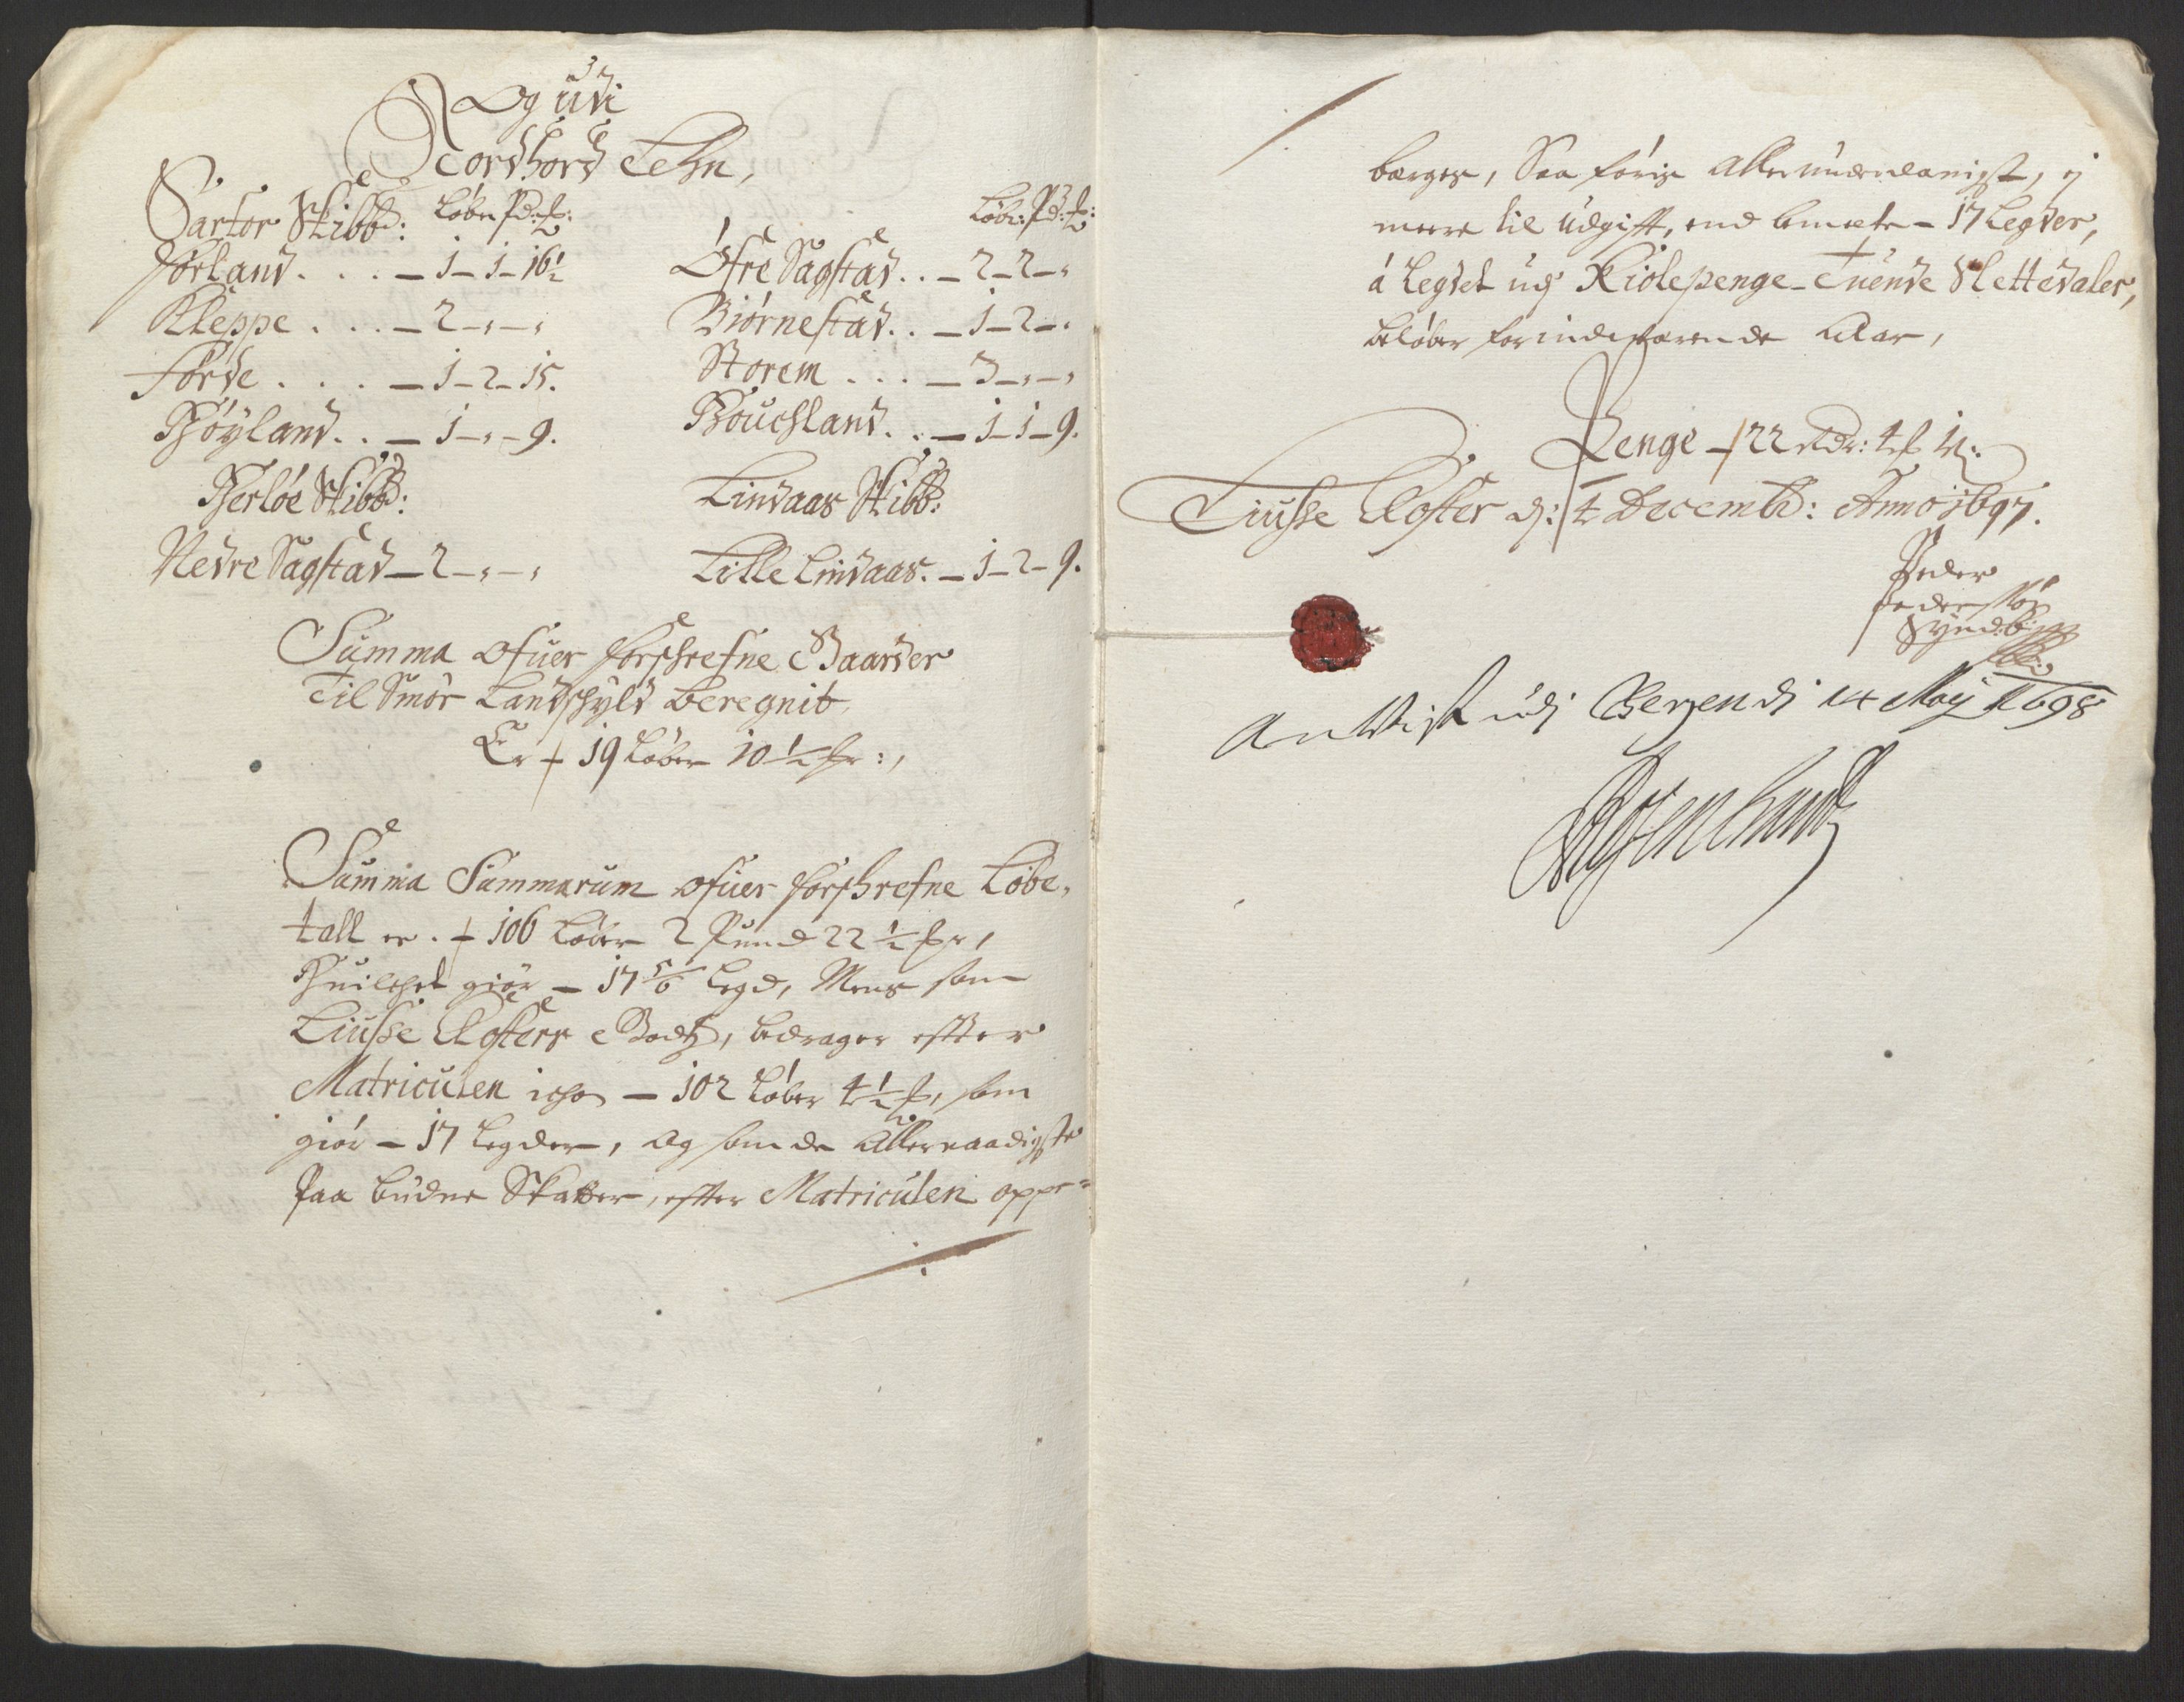 Og udi
Nordhord Lehn,
Sartor Skibbd: Løber Pd: ℔:
Førland . . . — 1 — 1 — 16½
Kleppe . . . — 2 — , — ,
Førde . . . — 1 — 2 — 15.
Høyland . . — 1 — , — 9.
Herløe Skibbd:
Nedre Sagstad — 2 — , — ,
Løbr: Pd: ℔:
Øfre Sagstad . . — 2 — 2 — ,
Biørnestad . . — 1 — 2 — ,
Storem . . . — 3 — , — ,
Houchland . . — 1 — 1 — 9.
Lindaas Skibbd:
Lille Lindaas. — 1 — 2 — 9.
Summa ofuer forschrefne Gaarder
Til Smør Landschyld beregnit,
Er — 19 Løber 10½ ℔r:,
Summa Summarum ofuer forschrefne Løbe,
tall er . — 106 Løber 2 Pund 22½ ℔r,
Huilchet giør — 17 5/6 Legd, Mens som
Liusse Closters Godtz, bedrager effter
Matriculen ichon — 102 Løber 4½ ℔, som
giør — 17 Legder, og som de Allernaadigste
paa budne Skatter, effter Matriculen oppe=
bærges, Saa føris Allerunderdanigst, ej
meere til Udgifft, end bemelte — 17 Legder,
á Legdet udj Kiolepenge — Tuende Slettedaler,
beløber for indeværende Aar,
Penge — 22 Rdr: 4 ℔ 16:
Liusse Closter d: 4 Decembr: Anno 1697.
Peder
Pedersøn
Antvist udj Bergen d: 14 Maij 1698